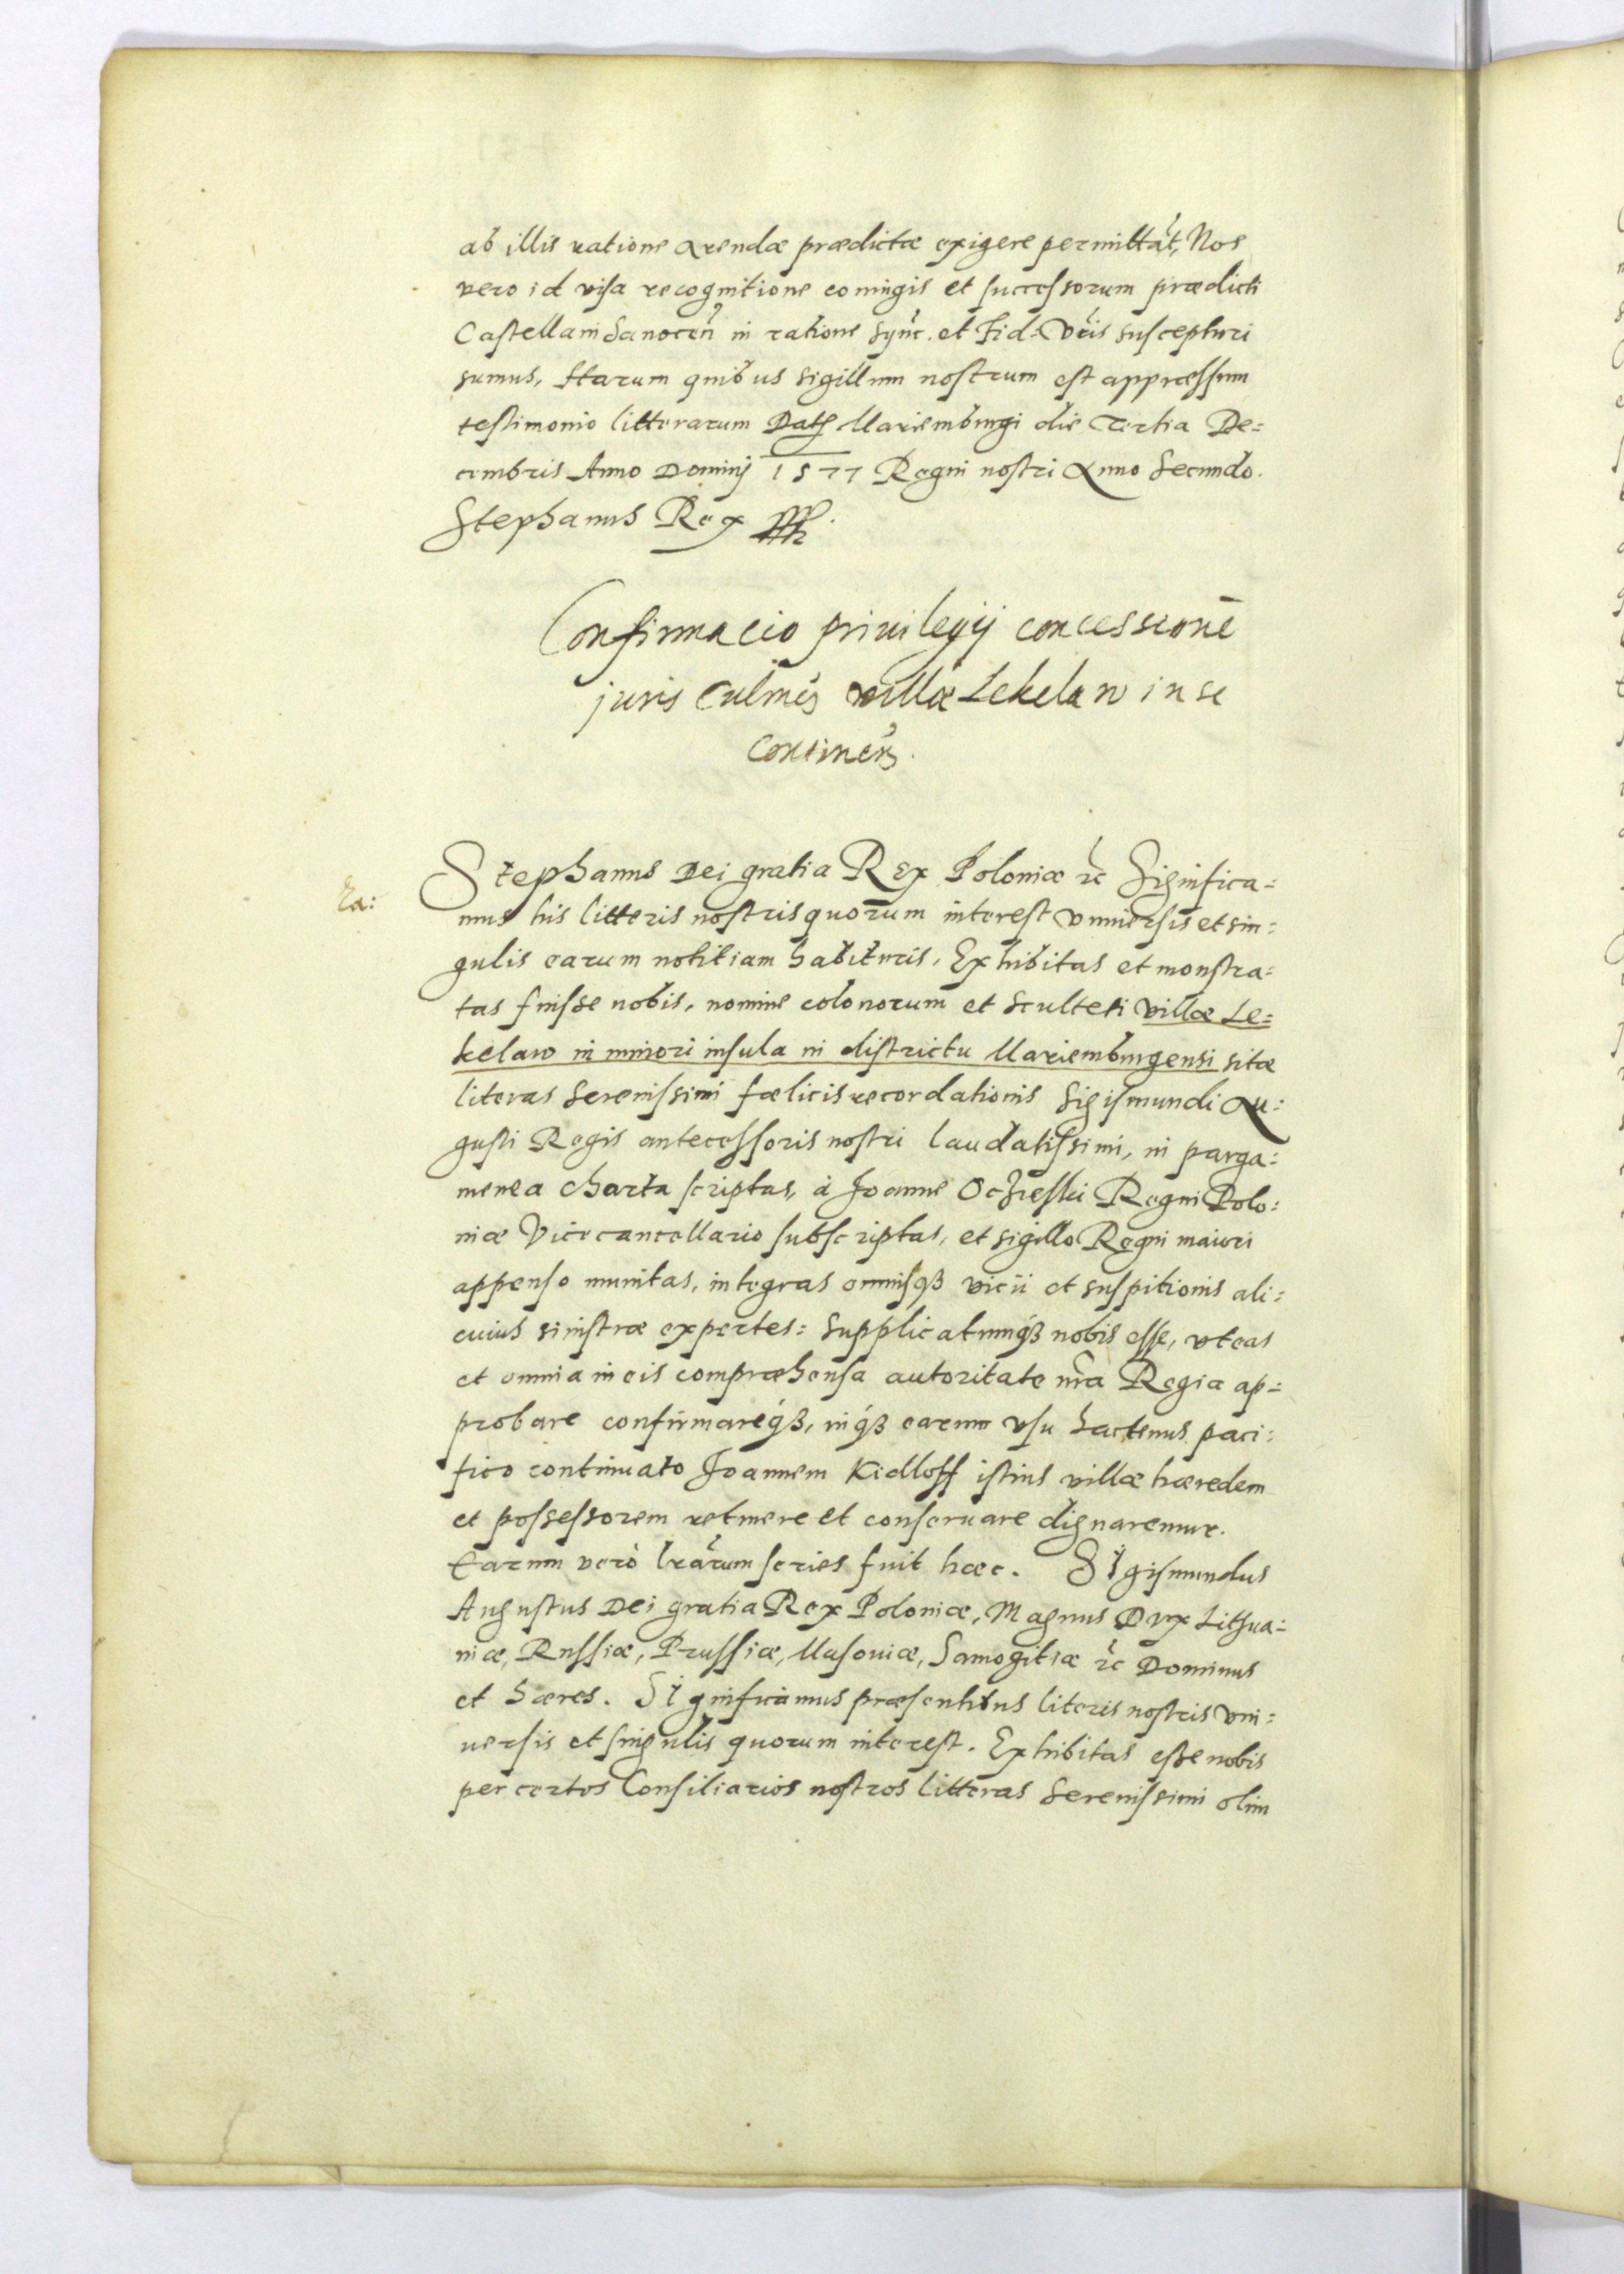 ab illis ratione Arendæ prædictæ exigere permittãt, Nos
vero id visa recognitione coniugis et successorum prædicti
Castellani Sanoceñ in ratione Sync. et Fid: Vr̃is suscepturi
sumus, Harum quibus sigillum nostrum est appressum
testimonio litterarum Datæ Mariemburgi die Tertia De=
cembris Anno Dominj 1577 Regni nostri Anno Secundo.
Stephanus Rex
Confirmacio priuilegij concessionẽ
juris Culmeñ villæ Lekelaw in se
Contineñs.
Ea:
Stephanus Dei gratia Rex Poloniæ ꝛc Significa=
mus his litteris nostris quorum interest vniuersis et sin=
gulis earum notitiam habituris, Exhibitas et monstra=
tas fuisse nobis, nomine colonorum et Sculteti villæ Le=
kelaw in minori insula in districtu Mariemburgensi sitæ
literas Serenissimi fœlicis recordationis Sigismundi Au=
gusti Regis antecessoris nostri laudatissimi, in parga=
menea charta scriptas, à Joanne Ocżieski Regni Polo=
niæ Vicecancellario subscriptas, et sigillo Regni maiori
appenso munitas, integras omnisqꝫ vicii et suspitionis ali=
cuius sinistræ expertes: Supplicatumqꝫ nobis esse, vt eas
et omnia in eis compræhensa autoritate nr̃a Regia ap=
probare confirmareqꝫ, inqꝫ earum vsu hactenus paci=
fico continuato Joannem Kidloff istius villæ hæredem
et possessorem retinere et conseruare dignaremur.
Earum verò lr̃arum series fuit hæc. Sigismundus
Augustus Dei gratia Rex Poloniæ, Magnus Dux Lithua=
niæ, Russiæ, Prussiæ, Masouiæ, Samogitiæ ꝛc Dominus
et hæres. Significamus præsentibus literis nostris vni=
uersis et singulis quorum interest. Exhibitas esse nobis
per certos Consiliarios nostros litteras Serenissimi olim